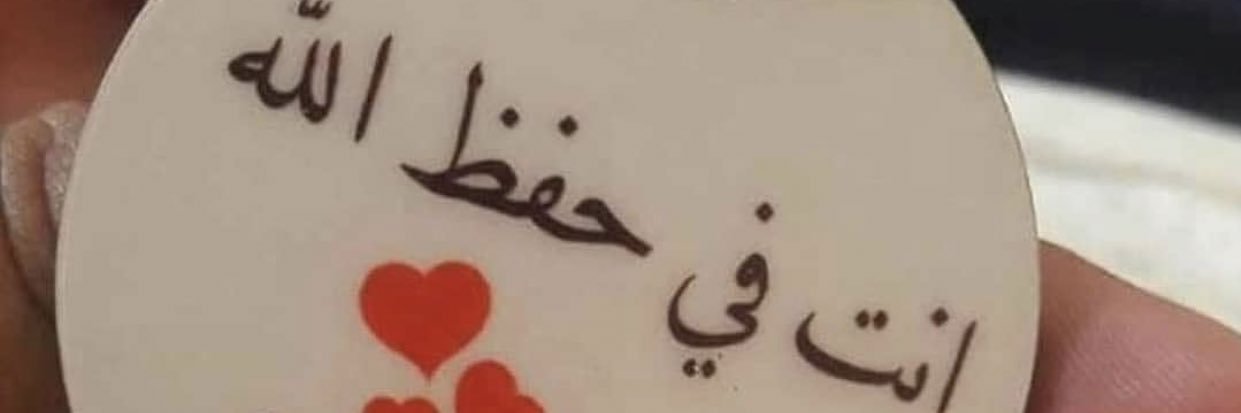 انت في حفظ الله